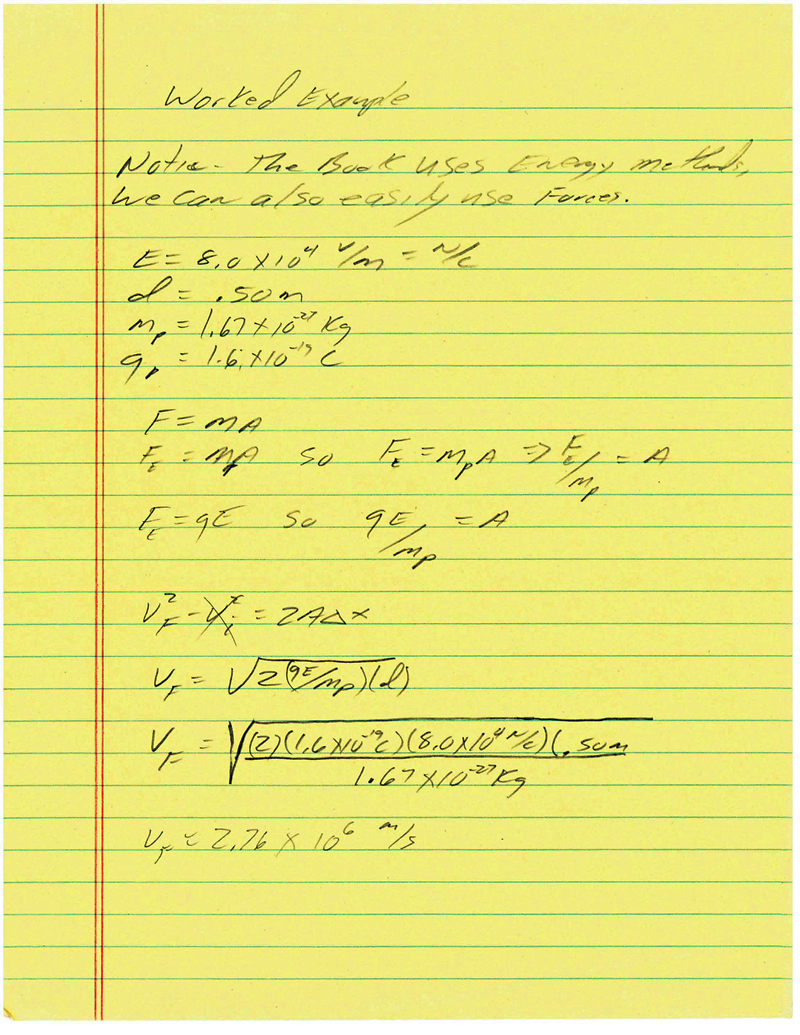 Worked Example
Notice - The Book uses Energy methods,
we can also easily use Forces.
E = 8.0 X 10⁴ V/m = N/C
d = .50m
mₚ = 1.67 X 10⁻²⁷ Kg
qₚ = 1.6 X 10⁻¹⁹ C
F = mA
F_E = mA so F_E = mₚA => F_E/mₚ = A
F_E = qE so qE/mₚ = A
V_F² - V_i² = 2AΔx
V_F = √2(qE/mₚ)(d)
V_F = √(2)(1.6X10⁻¹⁹C)(8.0X10⁴ N/C)(.50m
1.67 X 10⁻²⁷ Kg
V_F = 2.76 X 10⁶ m/s